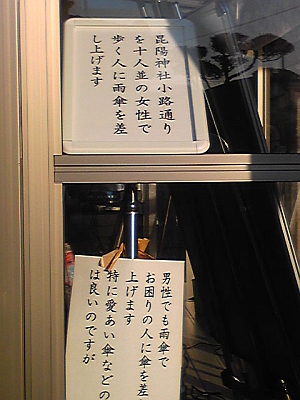 昆陽神社小路通り
を十人並の女性で
歩く人に雨傘を差
し上げます
男性でも雨傘で
お困りの人に傘を差
上げます
特に愛あい傘などの
は良いのですが